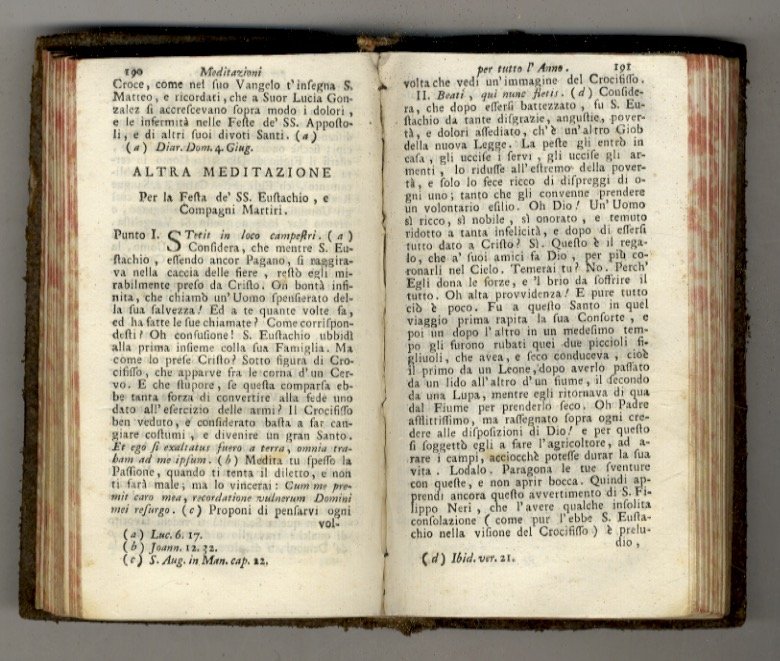 190 Meditazioni
Croce, come nel ſuo Vangelo t'inſegna S.
Matteo, e ricordati, che a Suor Lucia Gon-
zalez ſi accreſcevano ſopra modo i dolori,
e le infermità nelle Feſte de' SS. Appoſto-
li, e di altri ſuoi divoti Santi. (a)
(a) Diar. Dom. 4. Giug.
ALTRA MEDITAZIONE
Per la Feſta de' SS. Euſtachio, e
Compagni Martiri.
Punto I. STetit in loco campeſtri. (a)
Conſidera, che mentre S. Eu-
ſtachio, eſſendo ancor Pagano, ſi raggira-
va nella caccia delle fiere, reſtò egli mi-
rabilmente preſo da Criſto. Oh bontà infi-
nita, che chiamò un'Uomo ſpenſierato del-
la ſua ſalvezza! Ed a te quante volte fa,
ed ha fatte le ſue chiamate? Come corriſpon-
deſti? Oh confuſione! S. Euſtachio ubbidì
alla prima inſieme colla ſua Famiglia. Ma
come lo preſe Criſto? Sotto figura di Cro-
cifiſſo, che apparve fra le corna d'un Cer-
vo. E che ſtupore, ſe queſta comparſa eb-
be tanta forza di convertire alla fede uno
dato all'eſercizio delle armi? Il Crocifiſſo
ben veduto, e conſiderato baſta a far can-
giare coſtumi, e divenire un gran Santo.
Et ego ſi exaltatus fuero a terra, omnia tra-
ham ad me ipſum. (b) Medita tu ſpeſſo la
Paſſione, quando ti tenta il diletto, e non
ti farà male; ma lo vincerai: Cum me pre-
mit caro mea, recordatione vulnerum Domini
mei reſurgo. (c) Proponi di penſarvi ogni
vol-
(a) Luc. 6. 17.
(b) Joann. 12. 32.
(c) S. Aug. in Man. cap. 22.
per tutto l'Anno. 191
volta che vedi un'immagine del Crocifiſſo.
II. Beati, qui nunc fletis. (d) Conſide-
ra, che dopo eſſerſi battezzato, fu S. Eu-
ſtachio da tante diſgrazie, anguſtie, pover-
tà, e dolori aſſediato, ch'è un'altro Giob
della nuova Legge. La peſte gli entrò in
caſa, gli ucciſe i ſervi, gli ucciſe gli ar-
menti, lo riduſſe all'eſtremo della pover-
tà, e ſolo lo fece ricco di diſpreggi di o-
gni uno; tanto che gli convenne prendere
un volontario eſilio. Oh Dio! Un'Uomo
sì ricco, sì nobile, sì onorato, e temuto
ridotto a tanta infelicità, e dopo di eſſerſi
tutto dato a Criſto? Sì. Queſto è il rega-
lo, che a' ſuoi amici fa Dio, per più co-
ronarli nel Cielo. Temerai tu? No. Perch'
Egli dona le forze, e 'l brio da ſoffrire il
tutto. Oh alta provvidenza! E pure tutto
ciò è poco. Fu a queſto Santo in quel
viaggio prima rapita la ſua Conſorte, e
poi un dopo l'altro in un medeſimo tem-
po gli furono rubati quei due piccioli fi-
gliuoli, che avea, e ſeco conduceva, cioè
il primo da un Leone, dopo averlo paſſato
da un lido all'altro d'un fiume, il ſecondo
da una Lupa, mentre egli ritornava di qua
dal Fiume per prenderlo ſeco. Oh Padre
afflittiſſimo, ma raſſegnato ſopra ogni cre-
dere alle diſpoſizioni di Dio! e per queſto
ſi ſoggettò egli a fare l'agricoltore, ad a-
rare i campi, acciocchè poteſſe durar la ſua
vita. Lodalo. Paragona le tue ſventure
con queſte, e non aprir bocca. Quindi ap-
prendi ancora queſto avvertimento di S. Fi-
lippo Neri, che l'avere qualche inſolita
conſolazione (come pur l'ebbe S. Euſta-
chio nella viſione del Crocifiſſo) è prelu-
dio,
(d) Ibid. ver. 21.